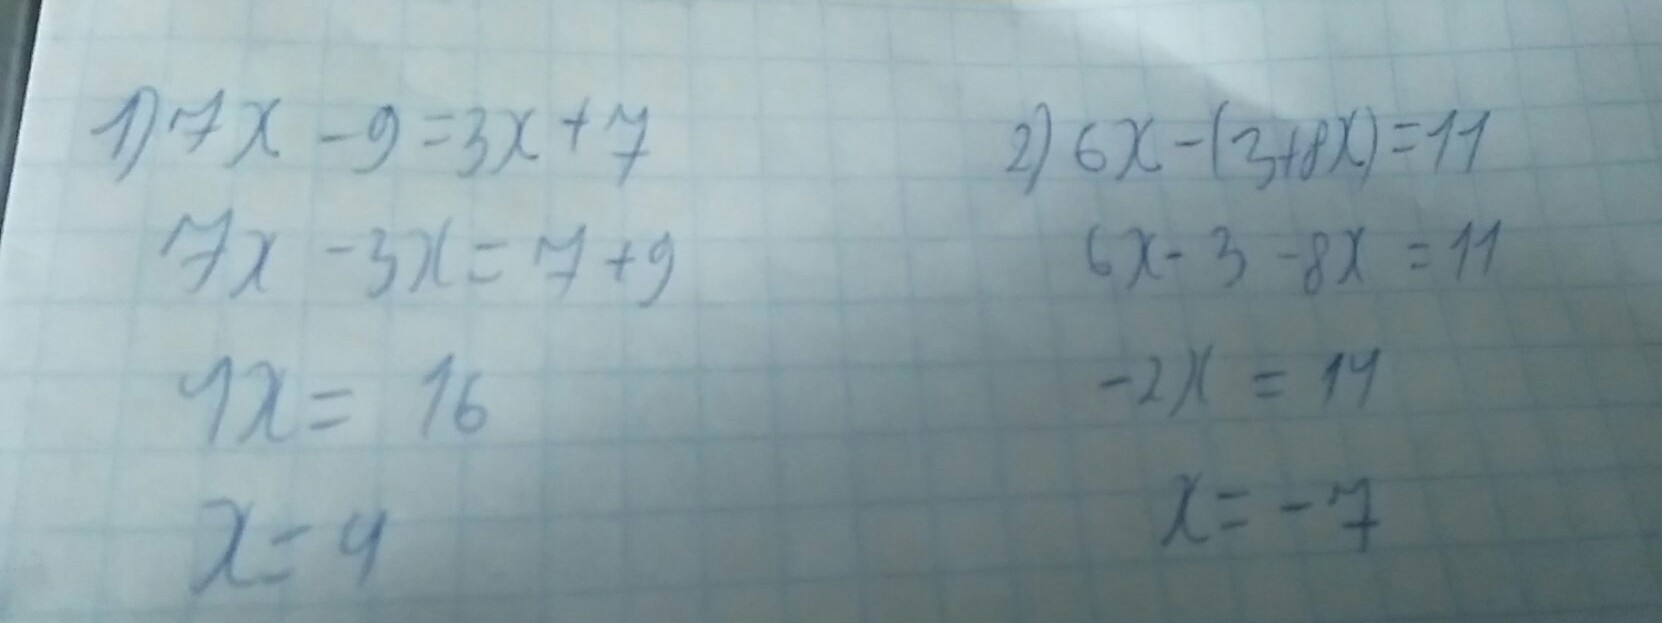 1) 7x - 9 = 3x + 7
7x - 3x = 7 + 9
4x = 16
x = 4
2) 6x - (3 + 8x) = 11
6x - 3 - 8x = 11
-2x = 14
x = -7